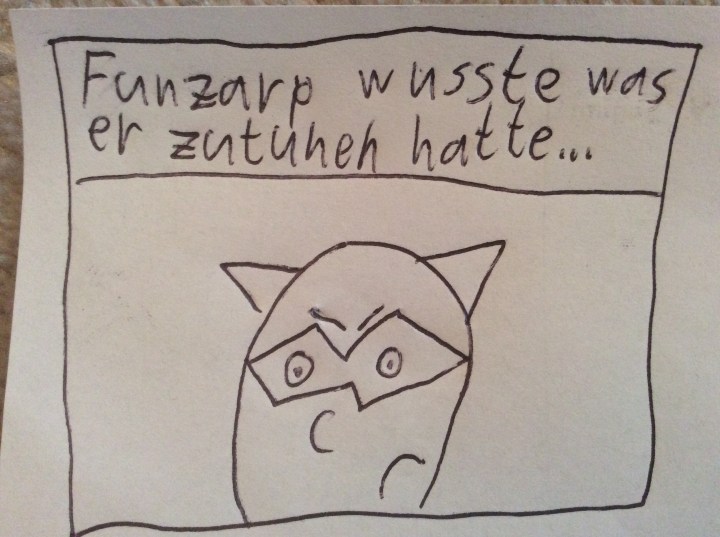 Funzarp wusste was
er zutuhen hatte...